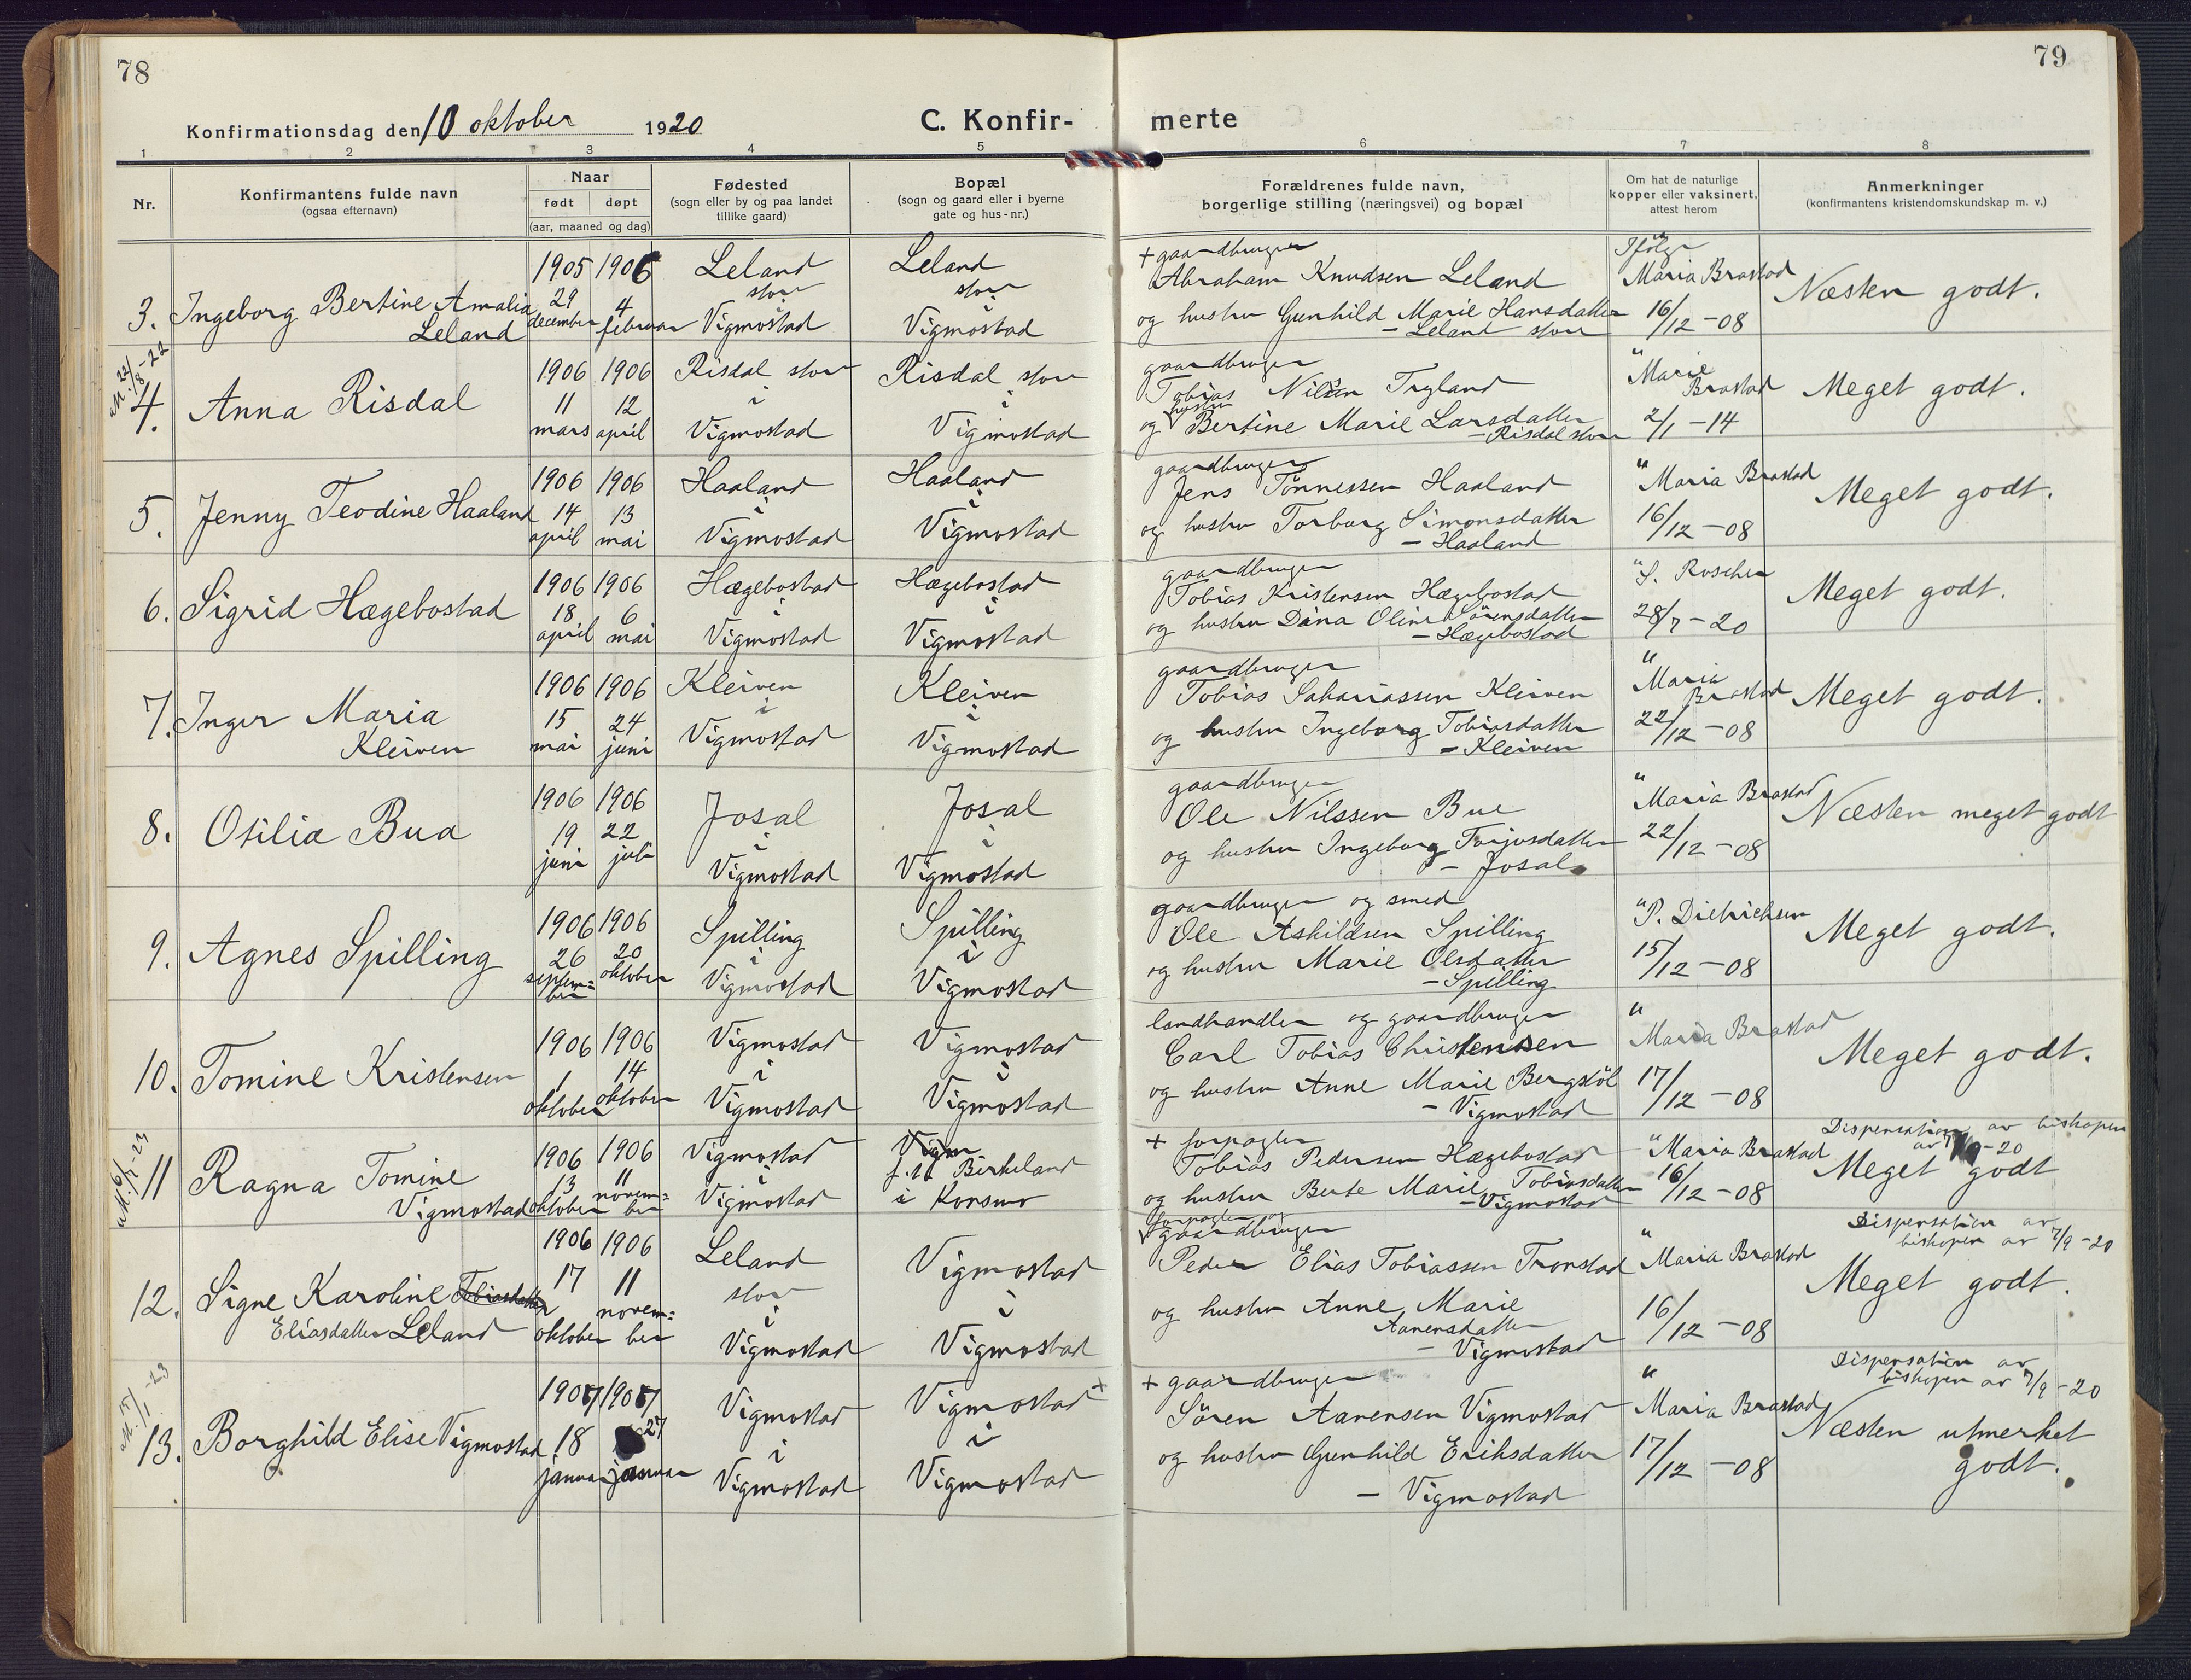 78
79
Konfirmationsdag den 10 oktober 1920
C. Konfir-
merte
1
2
3
4
5
6
7
8
Nr.
Konfirmantens fulde navn
(ogsaa efternavn)
Naar
født døpt
(aar, maaned og dag)
Fødested
(sogn eller by og paa landet
tillike gaard)
Bopæl
(sogn og gaard eller i byerne
gate og hus-nr.)
Forældrenes fulde navn,
borgerlige stilling (næringsvei) og bopæl
Om hat de naturlige
kopper eller vaksinert,
attest herom
Anmerkninger
(konfirmantens kristendomskundskap m. v.)
3. Ingeborg Bertine Amalia
Leland
1905 29 december
1906 4 februar
Leland
stor
i
Vigmostad
Leland
stor
i
Vigmostad
+ gaardbruger
Abraham Knudsen Leland
og hustru Gunhild Marie Hansdatter
- Leland stor
Ifölge
Maria Brastad
16/12 - 08
Næsten godt.
M. 22/8-22
4. Anna Risdal
1906 11 mars
1906 12 april
Risdal stor
i
Vigmostad
Risdal stor
i
Vigmostad
gaardbruger
Tobias Nilsen Tryland
hustru
og Bertine Marie Larsdatter
- Risdal stor
" Marie
Brastad
2/1 - 14
Meget godt.
5. Jenny Teodine Haaland
1906 14 april
1906 13 mai
Haaland
i
Vigmostad
Haaland
i
Vigmostad
gaardbruger
Jens Tönnessen Haaland
og hustru Torborg Simonsdatter
- Haaland
" Maria Brastad
16/12 - 08
Meget godt.
6. Sigrid Hægebostad
1906 18 april
1906 6 mai
Hægebostad
i
Vigmostad
Hægebostad
i
Vigmostad
gaardbruger
Tobias Kristensen Hægebostad
og hustru Dina Oline Sörensdatter
- Hægebostad
" S. Roscher
28/7 - 20
Meget godt.
7. Inger Maria
Kleiven
1906 15 mai
1906 24 juni
Kleiven
i
Vigmostad
Kleiven
i
Vigmostad
gaardbruger
Tobias Sakariassen Kleiven
og hustru Ingeborg Tobiasdatter
- Kleiven
" Maria
Brastad
22/12 - 08
Meget godt.
8. Otilia Bua
1906 19 juni
1906 22 juli
Josal
i
Vigmostad
Josal
i
Vigmostad
gaardbruger
Ole Nilssen Bue
og hustru Ingeborg Torjusdatter
- Josal
" Maria Brastad
22/12 - 08
Næsten meget godt
9. Agnes Spilling
1906 26 septem=
ber
1906 20 oktober
Spilling
i
Vigmostad
Spilling
i
Vigmostad
gaardbruger og smed
Ole Askildsen Spilling
og hustru Marie Olsdatter
- Spilling
" P. Dietrichsen
15/12 - 08
Meget godt.
10. Tomine Kristensen
1906 1 oktober
1906 14 oktober
Vigmostad
i
Vigmostad
Vigmostad
i
Vigmostad
landhandler og gaardbruger
Carl Tobias Christensen
og hustru Anne Marie Bergstöl
- Vigmostad
"
Maria Brastad
17/12 - 08
Meget godt.
11 Ragna Tomine
Vigmostad
1906 13 oktober
1906 11 novem=
ber
Vigmostad
i
Vigmostad
Vigm
f.t. Birkeland
i Konsmo
+ forpagter
Tobias Pedersen Hægebostad
og hustru Berte Marie Tobiasdatter
- Vigmostad
" Maria Brastad
16/12 - 08
Dispensation av biskopen
Meget godt
12. Signe Karoline Tobiasdatter
Eliasdatter Leland
1906 17 oktober
1906 11 novem=
ber
Leland
stor
i
Vigmostad
Vigmostad
i
Vigmostad
forpagter og
gaardbruger
Peder Elias Tobiassen Tronstad
og hustru Anne Marie
Aanensdatter
- Vigmostad
" Maria Brastad
16/12 - 08
Dispensation av
biskopen av 7/9 - 20
Meget godt.
M. 15/1-23
13. Borghild Elise Vigmostad
1907 18 januar
1907 27 januar
Vigmostad
i
Vigmostad
Vigmostad +
i
Vigmostad
+ gaardbruger
Sören Aanensen Vigmostad
og hustru Gunhild Eriksdatter
- Vigmostad
"
Maria Brastad
17/12 - 08
Dispensation av
biskopen av 7/9 - 20
Næsten utmerket
godt.